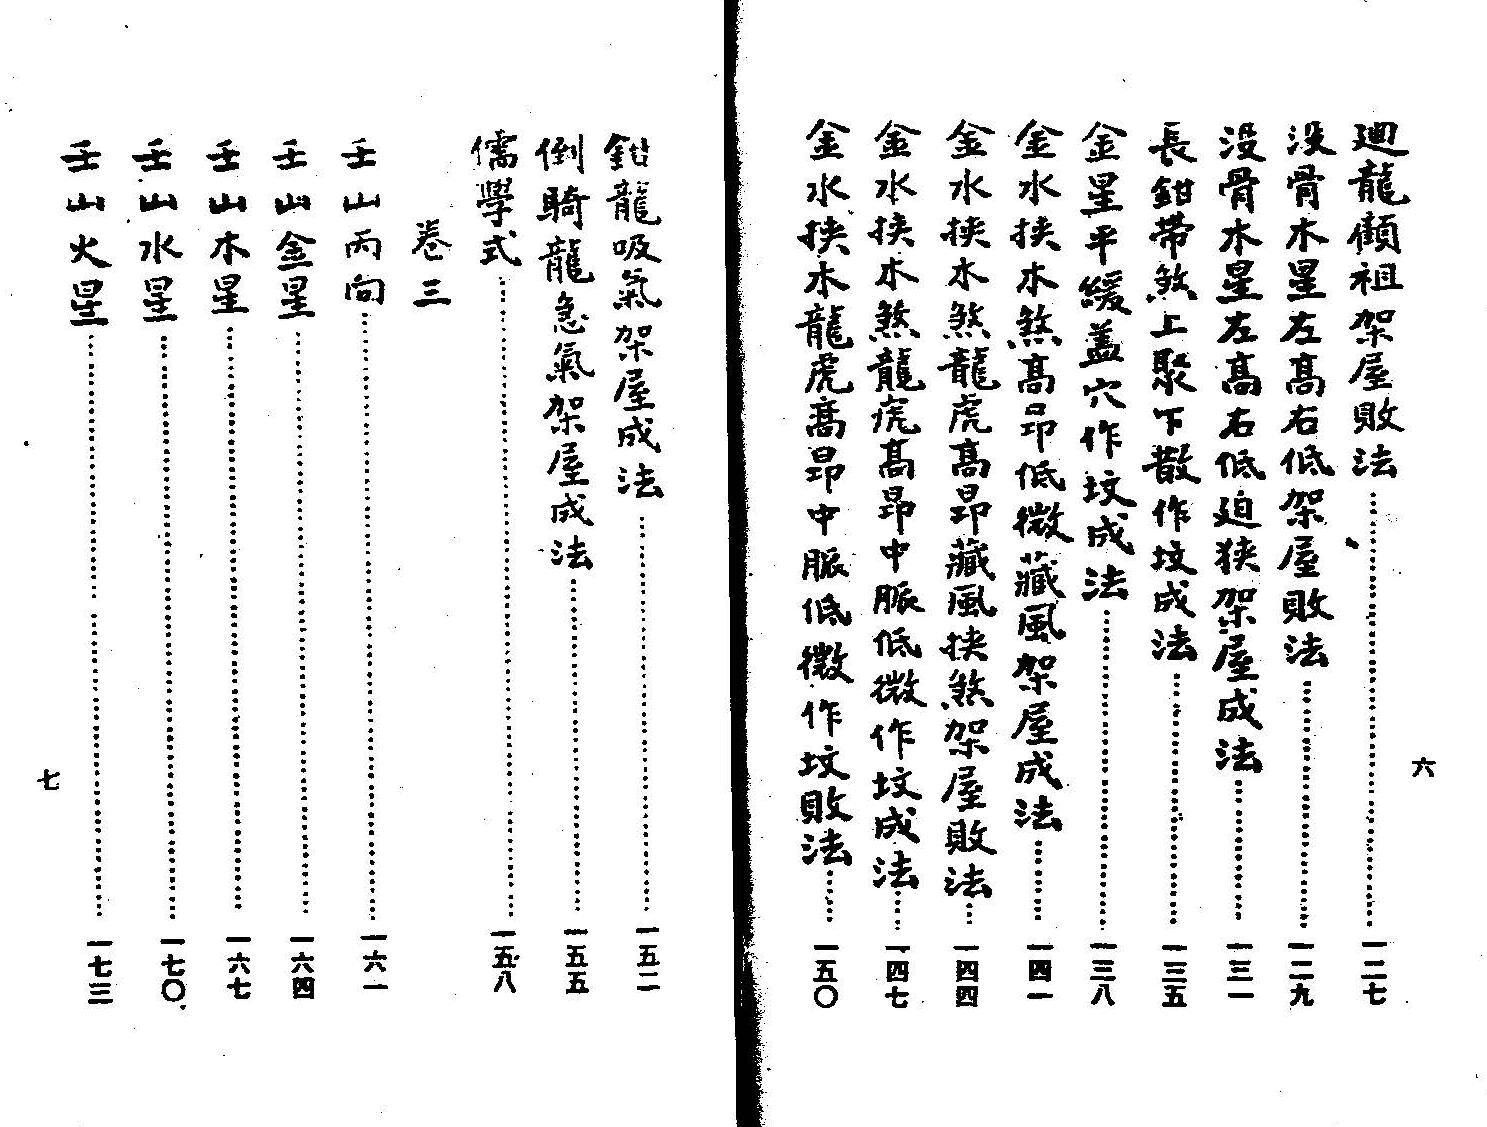 廻龍顧祖架屋敗法……一二七
没骨木星左高右低架屋敗法……一二九
没骨木星左高右低迫狭架屋成法……一三一
長鉗帶煞上聚下散作坟成法……一三五
金星平緩盖穴作坟成法……一三八
金水挟木煞高昂低微藏風架屋成法……一四一
金水挟木煞龍虎高昂藏風挟煞架屋敗法……一四四
金水挟木煞龍虎高昂中脈低微作坟成法……一四七
金水挟木龍虎高昂中脈低微作坟敗法……一五〇
六
鉗龍吸氣架屋成法……一五二
倒騎龍急氣架屋成法……一五五
儒學式……一五八
卷三
壬山丙向……一六一
壬山金星……一六四
壬山木星……一六七
壬山水星……一七〇
壬山火星……一七三
七